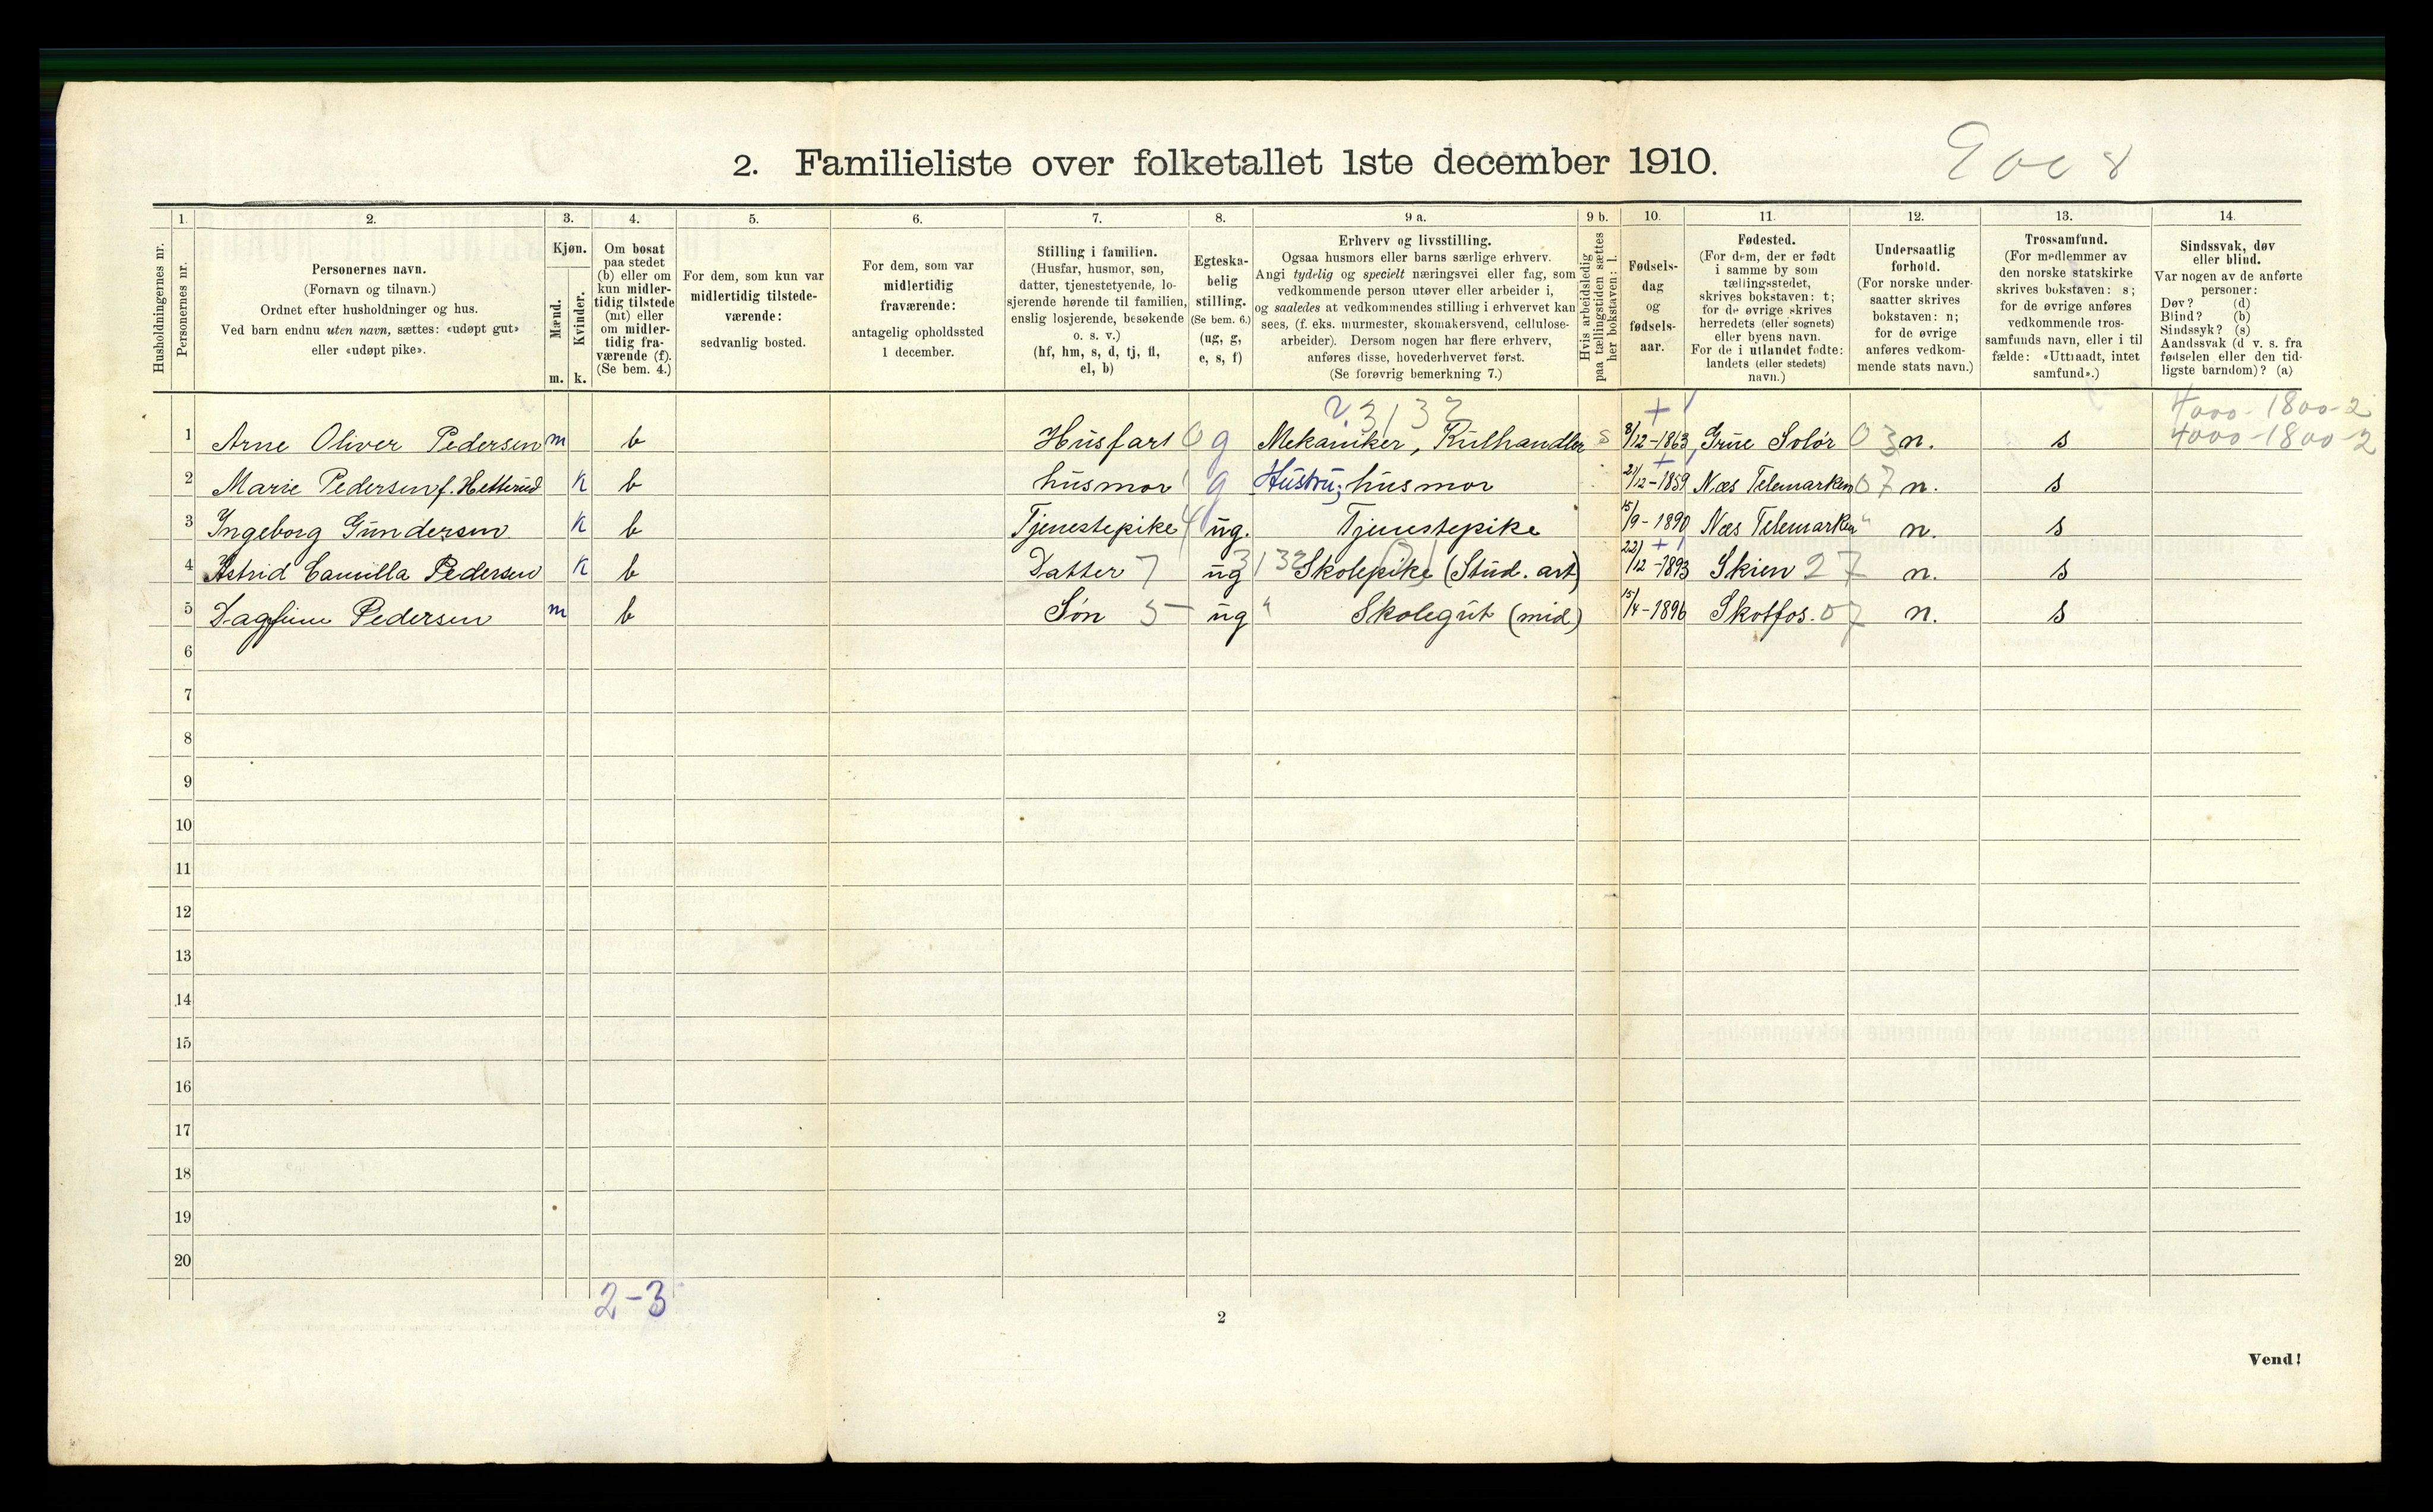 2. Familieliste over folketallet 1ste december 1910.
1. 2. 3. 4. 5. 6. 7. 8. 9 a. 9 b. 10. 11. 12. 13. 14.
Husholdningernes nr.
Personernes nr.
Personernes navn.
(Fornavn og tilnavn.)
Ordnet efter husholdninger og hus.
Ved barn endnu uten navn, sættes: «udøpt gut»
eller «udøpt pike».
Kjøn.
Mænd.
Kvinder.
m. k.
Om bosat
paa stedet
(b) eller om
kun midler-
tidig tilstede
(mt) eller
om midler-
tidig fra-
værende (f).
(Se bem. 4.)
For dem, som kun var
midlertidig tilstede-
værende:
sedvanlig bosted.
For dem, som var
midlertidig
fraværende:
antagelig opholdssted
1 december.
Stilling i familien.
(Husfar, husmor, søn,
datter, tjenestetyende, lo-
sjerende hørende til familien,
enslig losjerende, besøkende
o. s. v.)
(hf, hm, s, d, tj, fl,
el, b)
Egteska-
belig
stilling.
(Se bem. 6.)
(ug, g,
e, s, f)
Erhverv og livsstilling.
Ogsaa husmors eller barns særlige erhverv.
Angi tydelig og specielt næringsvei eller fag, som
vedkommende person utøver eller arbeider i,
og saaledes at vedkommendes stilling i erhvervet kan
sees, (f. eks. murmester, skomakersvend, cellulose-
arbeider). Dersom nogen har flere erhverv,
anføres disse, hovederhvervet først.
(Se forøvrig bemerkning 7.)
Hvis arbeidsledig
paa tællingstiden sættes
her bokstaven: l.
Fødsels-
dag
og
fødsels-
aar.
Fødested.
(For dem, der er født
i samme by som
tællingsstedet,
skrives bokstaven: t;
for de øvrige skrives
herredets (eller sognets)
eller byens navn.
For de i utlandet fødte:
landets (eller stedets)
navn.)
Undersaatlig
forhold.
(For norske under-
saatter skrives
bokstaven: n;
for de øvrige
anføres vedkom-
mende stats navn.)
Trossamfund.
(For medlemmer av
den norske statskirke
skrives bokstaven: s;
for de øvrige anføres
vedkommende tros-
samfunds navn, eller i til
fælde: «Uttraadt, intet
samfund».)
Sindssvak, døv
eller blind.
Var nogen av de anførte
personer:
Døv? (d)
Blind? (b)
Sindssyk? (s)
Aandssvak (d. v. s. fra
fødselen eller den tid-
ligste barndom)? (a)
4000-1800-2
1 Arne Oliver Pedersen m b Husfar 0 g Mekaniker, Kulhandler s 8/12-1863 Grue Solør 03 n. s 4000-1800-2
2 Marie Pedersen f. Hetterud K b husmor g Hustru; husmor 21/12-1859 Næs Telemarken 07 n. s
3 Ingeborg Gundersen K b Tjenestepike ug. Tjenestepike 15/9-1890 Næs Telemarken " n. s
4 Astrid Camilla Pedersen K b Datter 7 ug Skolepike (Stud. art) 22/12-1893 Skien 27 n. s
5 Dagfinn Pedersen m b Søn 5 ug " Skolegut (mid.) 15/4-1896 Skotfos. 07 n. s
6
7
8
9
10
11
12
13
14
15
16
17
18
19
20
2-3
2
Vend!